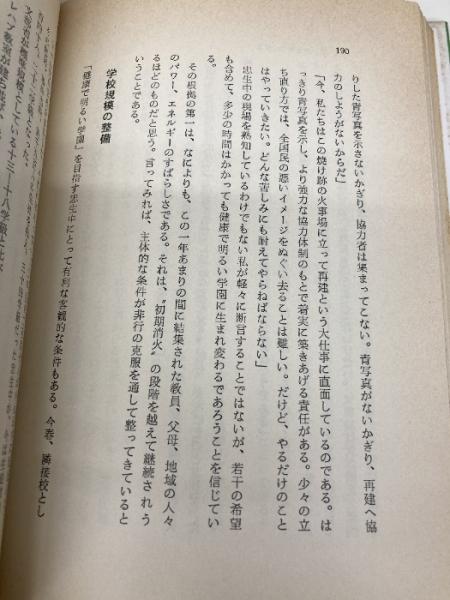 190
りした青写真を示さないかぎり、協力者は集まってこない。青写真がないかぎり、再建へ協
力のしようがないからだ」
「今、私たちはこの焼け跡の火事場に立って再建という大仕事に直面しているのである。は
っきり青写真を示し、より強力な協力体制のもとで着実に築きあげる責任がある。少々の立
ち直り方では、全国民の悪いイメージをぬぐい去ることは難しい。だけど、やるだけのこと
はやっていきたい。どんな苦しみにも耐えてやらねばならない」
忠生中の現場を熟知しているわけでもない私が軽々に断言することではないが、若干の希望
も含めて、多少の時間はかかっても健康で明るい学園に生まれ変わるであろうことを信じてい
る。
その根拠の第一は、なによりも、この一年あまりの間に結集された教員、父母、地域の人々
のパワー、エネルギーのすばらしさである。それは、〝初期消火〟の段階を越えて継続されう
るほどのものだと思う。言ってみれば、主体的な条件が非行の克服を通して整ってきていると
いうことである。
学校規模の整備
「健康で明るい学園」を目指す忠生中にとって有利な客観的な条件もある。今春、隣接校とし